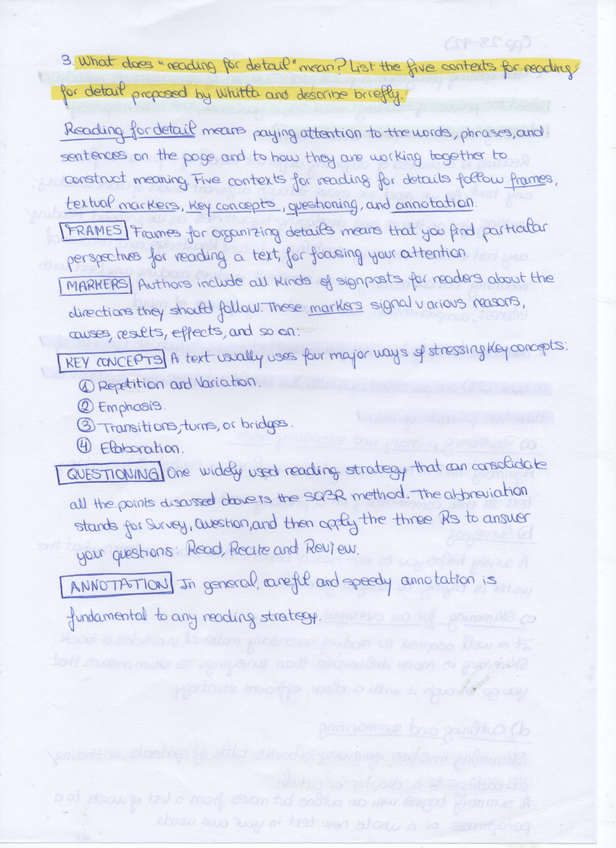 3. What does "reading for detail" mean? List the five contexts for reading
for detail proposed by Whitta and describe briefly.
Reading for detail means paying attention to the words, phrases, and
sentences on the page and to how they are working together to
construct meaning. Five contexts for reading for details follow frames,
textual markers, key concepts, questioning, and annotation.
FRAMES Frames for organizing details means that you find particular
perspectives for reading a text, for focusing your attention.
MARKERS Authors include all kinds of signposts for readers about the
directions they should follow. These markers signal various reasons,
causes, results, effects, and so on.
KEY CONCEPTS A text usually uses four major ways of stressing key concepts:
① Repetition and Variation.
② Emphasis.
③ Transitions, turns, or bridges.
④ Elaboration.
QUESTIONING One widely used reading strategy that can consolidate
all the points discussed above is the SQ3R method. The abbreviation
stands for Survey, Question, and then apply the three Rs to answer
your questions: Read, Recite and Review.
ANNOTATION In general, careful and speedy annotation is
fundamental to any reading strategy.